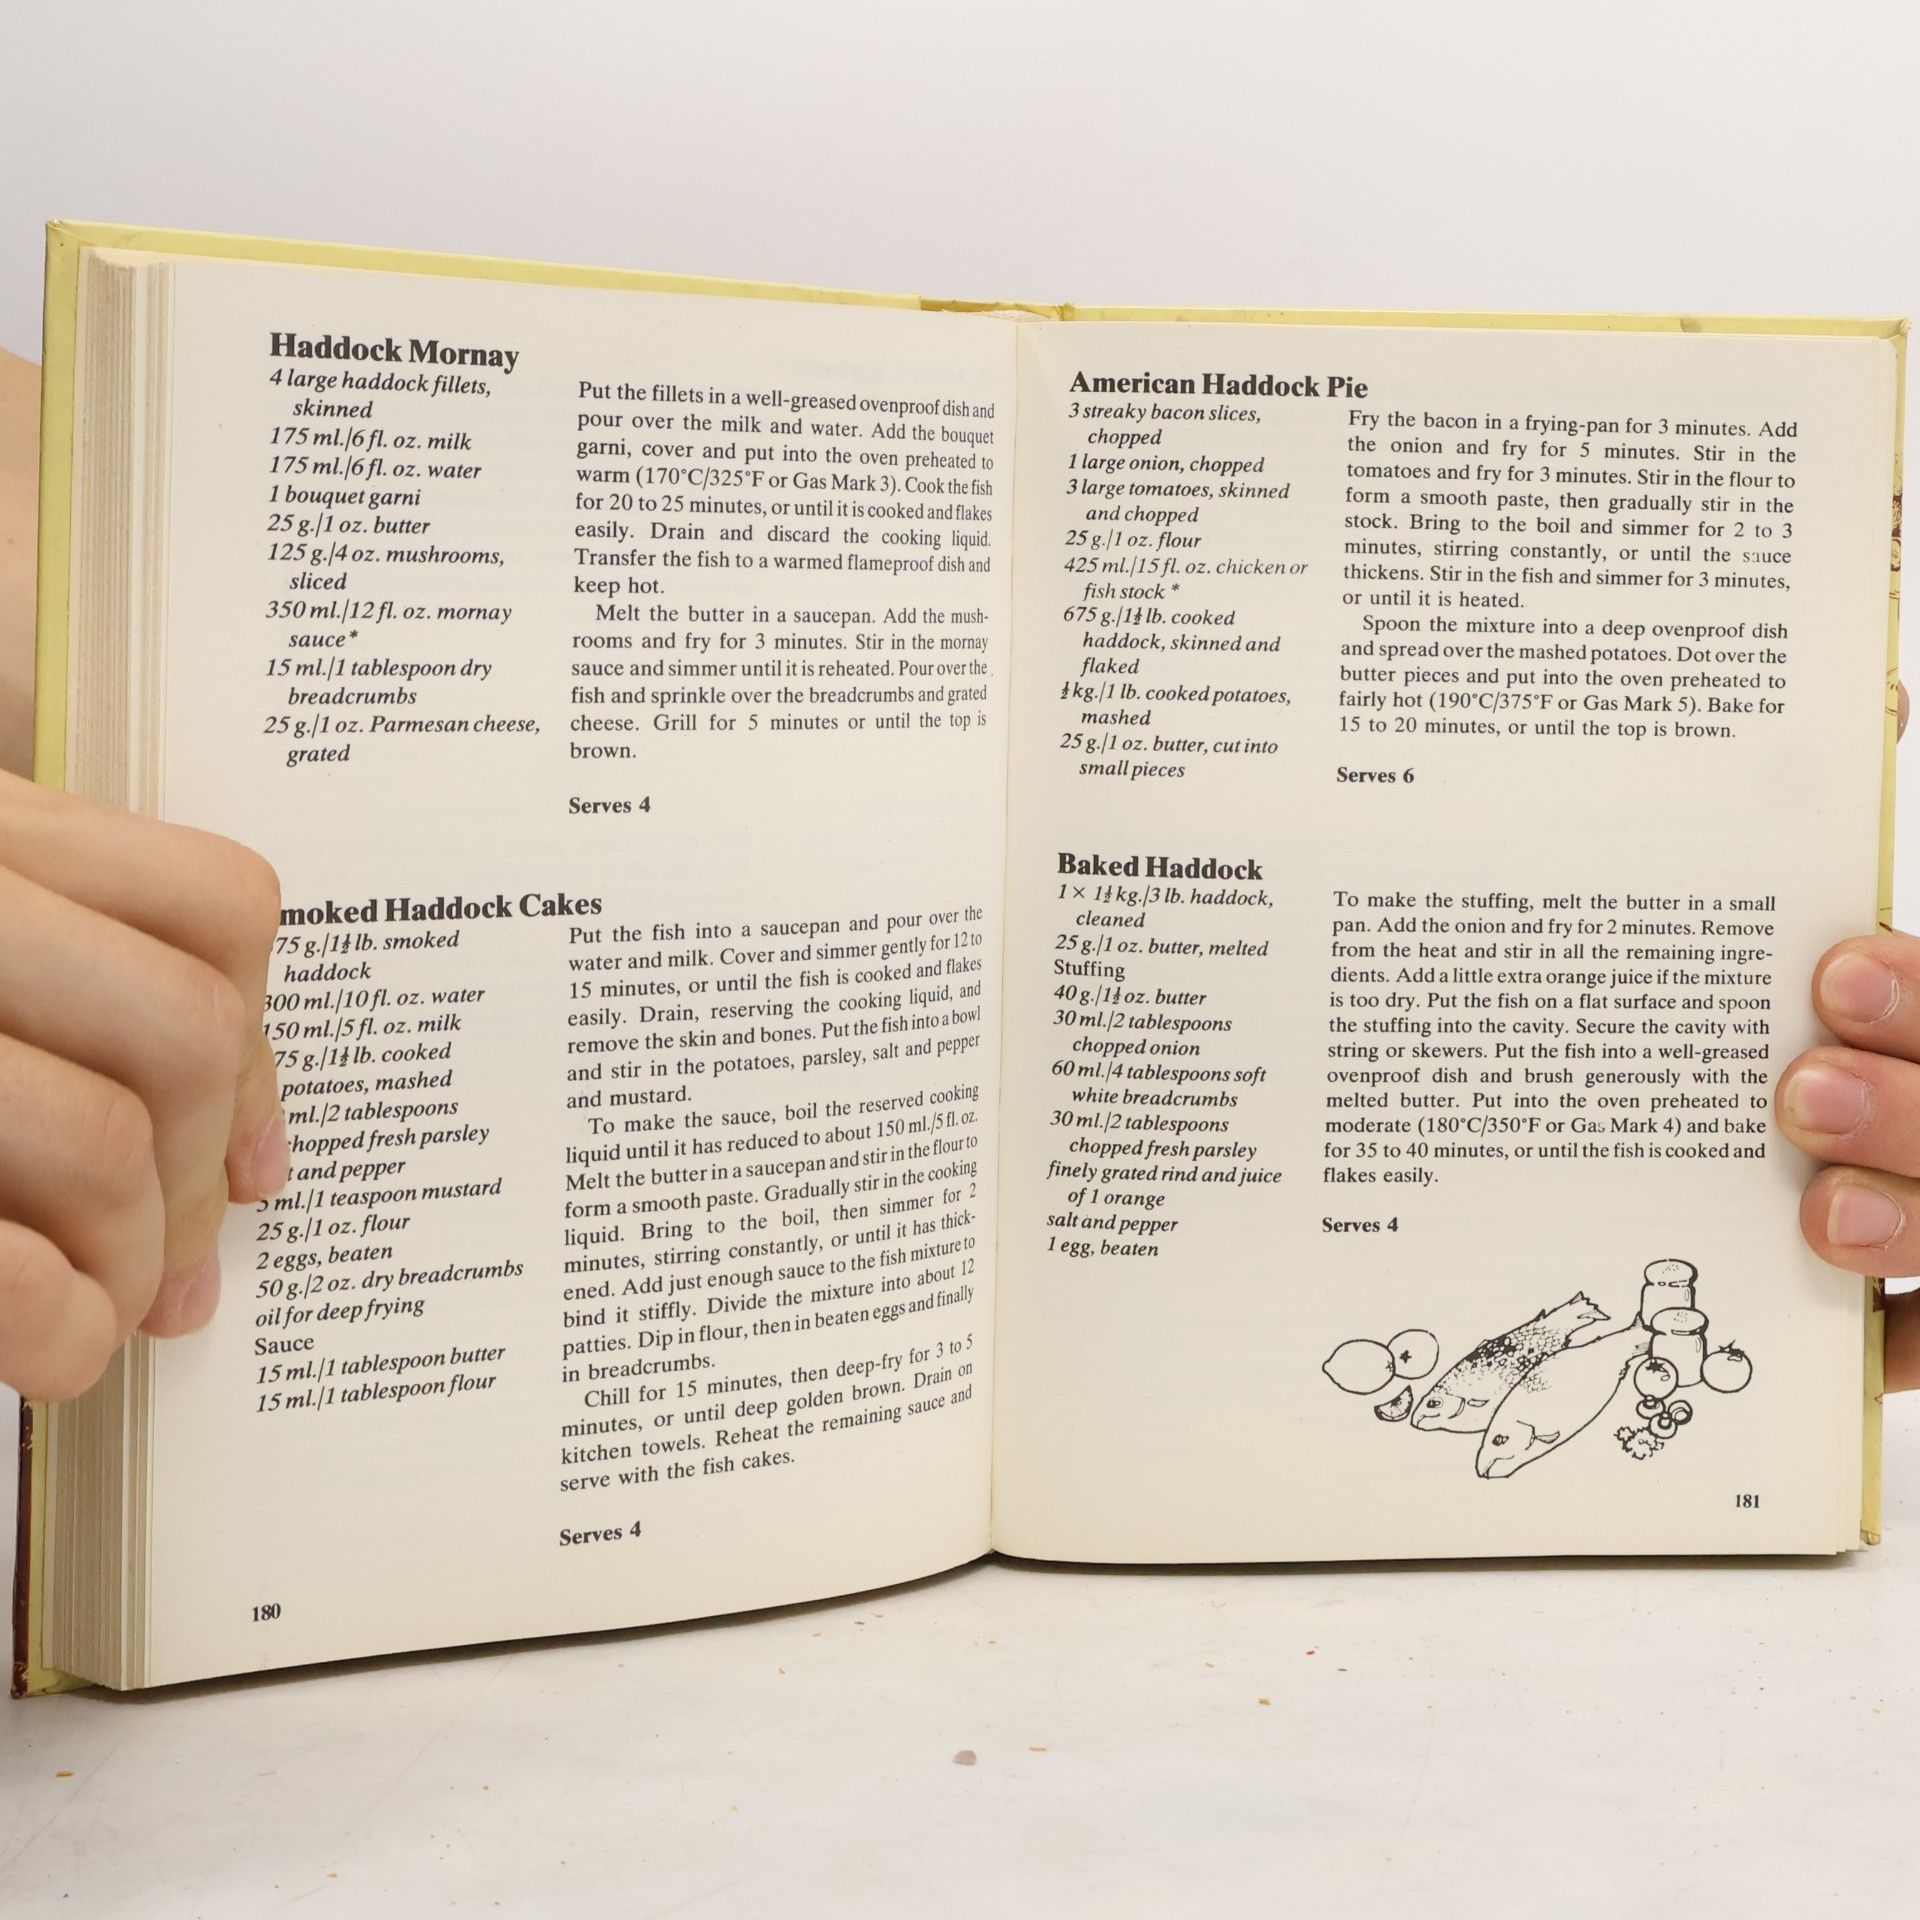 Haddock Mornay
4 large haddock fillets,
skinned
175 ml./6 fl. oz. milk
175 ml./6 fl. oz. water
1 bouquet garni
25 g./1 oz. butter
125 g./4 oz. mushrooms,
sliced
350 ml./12 fl. oz. mornay
sauce*
15 ml./1 tablespoon dry
breadcrumbs
25 g./1 oz. Parmesan cheese,
grated
Put the fillets in a well-greased ovenproof dish and
pour over the milk and water. Add the bouquet
garni, cover and put into the oven preheated to
warm (170°C/325°F or Gas Mark 3). Cook the fish
for 20 to 25 minutes, or until it is cooked and flakes
easily. Drain and discard the cooking liquid.
Transfer the fish to a warmed flameproof dish and
keep hot.
Melt the butter in a saucepan. Add the mush-
rooms and fry for 3 minutes. Stir in the mornay
sauce and simmer until it is reheated. Pour over the
fish and sprinkle over the breadcrumbs and grated
cheese. Grill for 5 minutes or until the top is
brown.
Serves 4
moked Haddock Cakes
75 g./1½ lb. smoked
haddock
300 ml./10 fl. oz. water
150 ml./5 fl. oz. milk
75 g./1½ lb. cooked
potatoes, mashed
ml./2 tablespoons
chopped fresh parsley
t and pepper
5 ml./1 teaspoon mustard
25 g./1 oz. flour
2 eggs, beaten
50 g./2 oz. dry breadcrumbs
oil for deep frying
Sauce
15 ml./1 tablespoon butter
15 ml./1 tablespoon flour
Put the fish into a saucepan and pour over the
water and milk. Cover and simmer gently for 12 to
15 minutes, or until the fish is cooked and flakes
easily. Drain, reserving the cooking liquid, and
remove the skin and bones. Put the fish into a bowl
and stir in the potatoes, parsley, salt and pepper
and mustard.
To make the sauce, boil the reserved cooking
liquid until it has reduced to about 150 ml./5 fl. oz.
Melt the butter in a saucepan and stir in the flour to
form a smooth paste. Gradually stir in the cooking
liquid. Bring to the boil, then simmer for 2
minutes, stirring constantly, or until it has thick-
ened. Add just enough sauce to the fish mixture to
bind it stiffly. Divide the mixture into about 12
patties. Dip in flour, then in beaten eggs and finally
in breadcrumbs.
Chill for 15 minutes, then deep-fry for 3 to 5
minutes, or until deep golden brown. Drain on
kitchen towels. Reheat the remaining sauce and
serve with the fish cakes.
Serves 4
180
American Haddock Pie
3 streaky bacon slices,
chopped
1 large onion, chopped
3 large tomatoes, skinned
and chopped
25 g./1 oz. flour
425 ml./15 fl. oz. chicken or
fish stock *
675 g./1½ lb. cooked
haddock, skinned and
flaked
½ kg./1 lb. cooked potatoes,
mashed
25 g./1 oz. butter, cut into
small pieces
Fry the bacon in a frying-pan for 3 minutes. Add
the onion and fry for 5 minutes. Stir in the
tomatoes and fry for 3 minutes. Stir in the flour to
form a smooth paste, then gradually stir in the
stock. Bring to the boil and simmer for 2 to 3
minutes, stirring constantly, or until the sauce
thickens. Stir in the fish and simmer for 3 minutes,
or until it is heated.
Spoon the mixture into a deep ovenproof dish
and spread over the mashed potatoes. Dot over the
butter pieces and put into the oven preheated to
fairly hot (190°C/375°F or Gas Mark 5). Bake for
15 to 20 minutes, or until the top is brown.
Serves 6
Baked Haddock
1 × 1½ kg./3 lb. haddock,
cleaned
25 g./1 oz. butter, melted
Stuffing
40 g./1½ oz. butter
30 ml./2 tablespoons
chopped onion
60 ml./4 tablespoons soft
white breadcrumbs
30 ml./2 tablespoons
chopped fresh parsley
finely grated rind and juice
of 1 orange
salt and pepper
1 egg, beaten
To make the stuffing, melt the butter in a small
pan. Add the onion and fry for 2 minutes. Remove
from the heat and stir in all the remaining ingre-
dients. Add a little extra orange juice if the mixture
is too dry. Put the fish on a flat surface and spoon
the stuffing into the cavity. Secure the cavity with
string or skewers. Put the fish into a well-greased
ovenproof dish and brush generously with the
melted butter. Put into the oven preheated to
moderate (180°C/350°F or Gas Mark 4) and bake
for 35 to 40 minutes, or until the fish is cooked and
flakes easily.
Serves 4
181